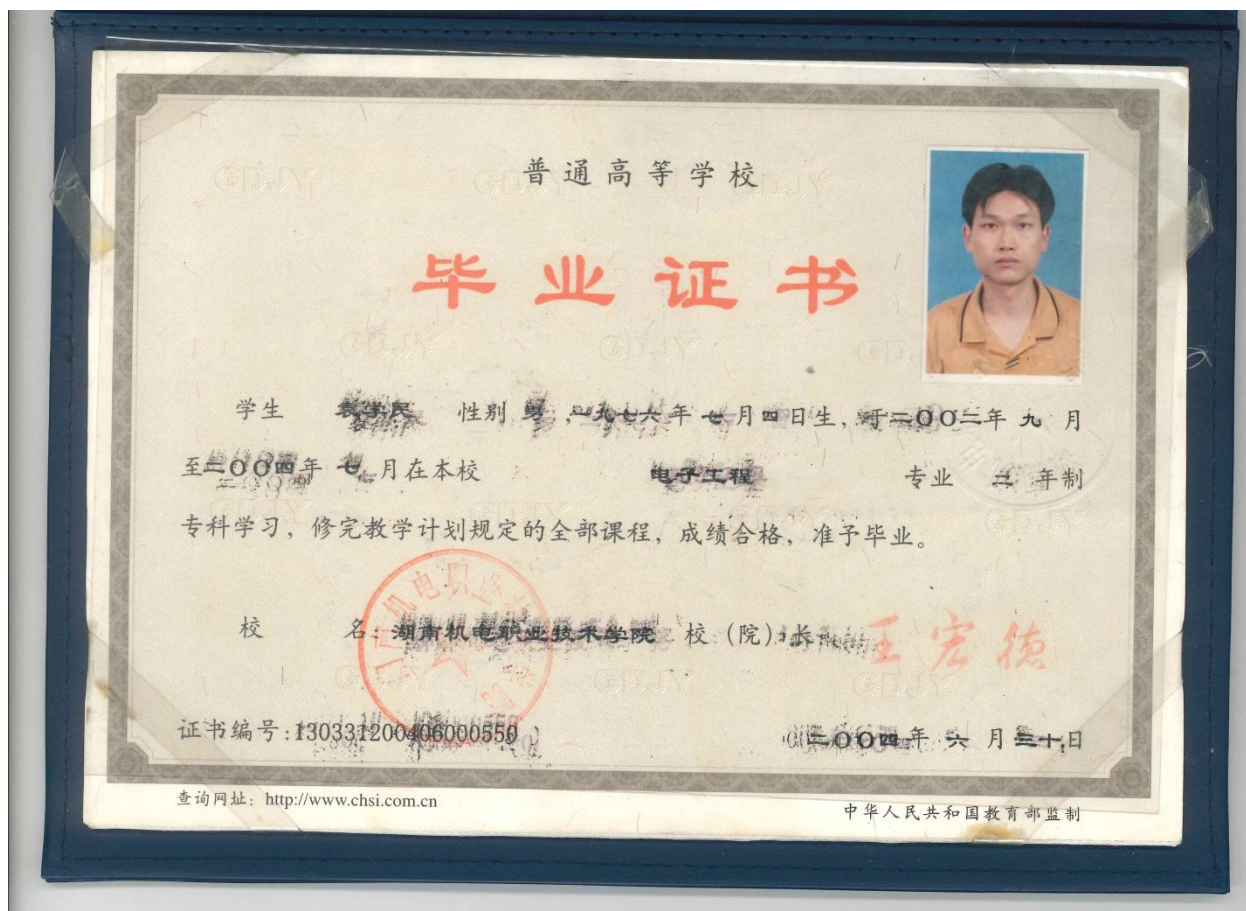 普通高等学校
毕业证书
学生 袁学民 性别 男,一九七六年七月四日生,于二〇〇二年九月
至二〇〇四年七月在本校 电子工程 专业 二 年制
专科学习,修完教学计划规定的全部课程,成绩合格,准予毕业。
校 名:湖南机电职业技术学院 校(院)长: 王宏德
证书编号:130331200406000550 二〇〇四年六月三十日
查询网址:http://www.chsi.com.cn
中华人民共和国教育部监制